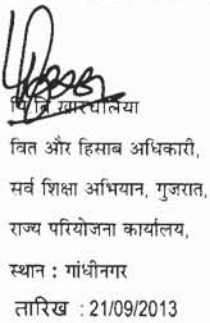 खारघलिया
वित और हिसाब अधिकारी,
सर्व शिक्षा अभियान, गुजरात,
राज्य परियोजना कार्यालय,
स्थान : गांधीनगर
तारिख : 21/09/2013